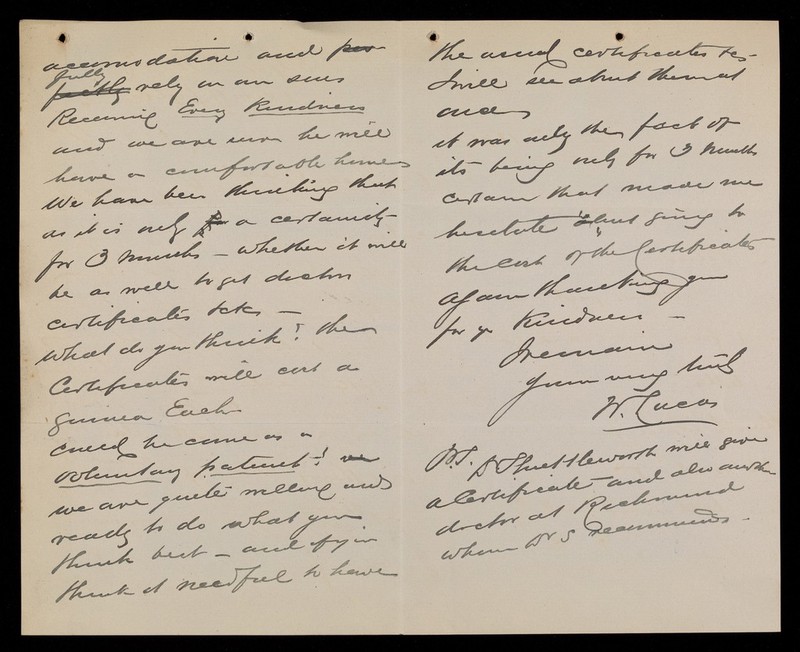 accomodation and per
fully
perfectly rely on our son's
Receiving Every Kindness
and we are sure he will
have a comfortable home
We have been thinking that
as it is only for a certainty
for 3 months - whether it will
be as well to get doctors
certificates &c -
What do you think? the
Certificates will cost a
guinea Each
could he come as a
voluntary patient? we
we are quite willing and
ready to do what you
think best - and if you
think it needful to have
the usual certificates &c
I will see about them at
once
it was only the fact of
its being only for 3 Months
certain that made me
hesitate about going to
the cost of the Certificates
Again thanking you
for yr Kindness -
I remain
Yours very truly
W. Lucas
P.S. Dr Shuttleworth will give
a Certificate and also another
doctor at Richmond
whom Dr S recommends -